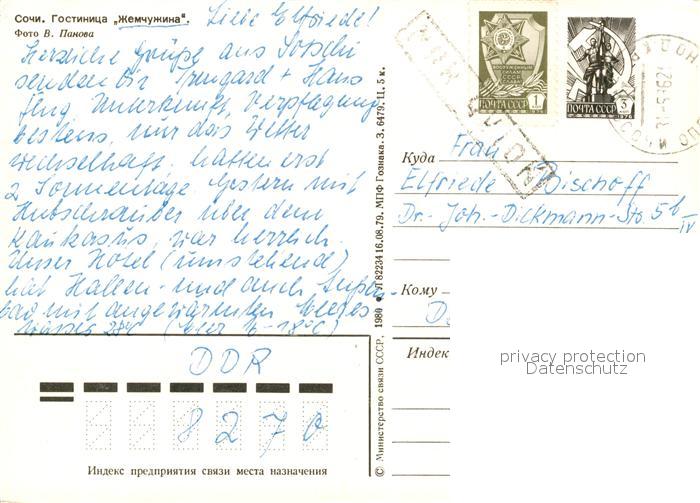 Сочи. Гостиница „Жемчужина".
Фото В. Панова
Liebe Elfriede!
Herzliche Grüße aus Sotschi
senden Dir Irmgard + Hans
Flug, Unterkunft, Verpflegung
bestens, nur das Wetter
wechselhaft. hatten erst
2 Sonnentage. Gestern mit
Hubschrauber über dem
Kaukasus, war herrlich.
Unser Hotel (umstehend)
hat Hallen- und auch
bad mit angewärmten Meeres-
wasser 28°C (hier 16-18°C)
DDR
8270
Индекс предприятия связи места назначения
© Министерство связи СССР. 1980 Л 82234 16.08.79. МПФ Гознака. З. 6479. Ц. 5 к.
ВООРУЖЕННЫЕ
СИЛЫ
СССР
ПОЧТА СССР 1
ПОЧТА СССР 3
1976
СОЧИ
Куда Frau
Elfriede Bischoff
Dr.-Joh.-Dickmann-Str. 5b
IV
Кому
Индек
privacy protection
Datenschutz